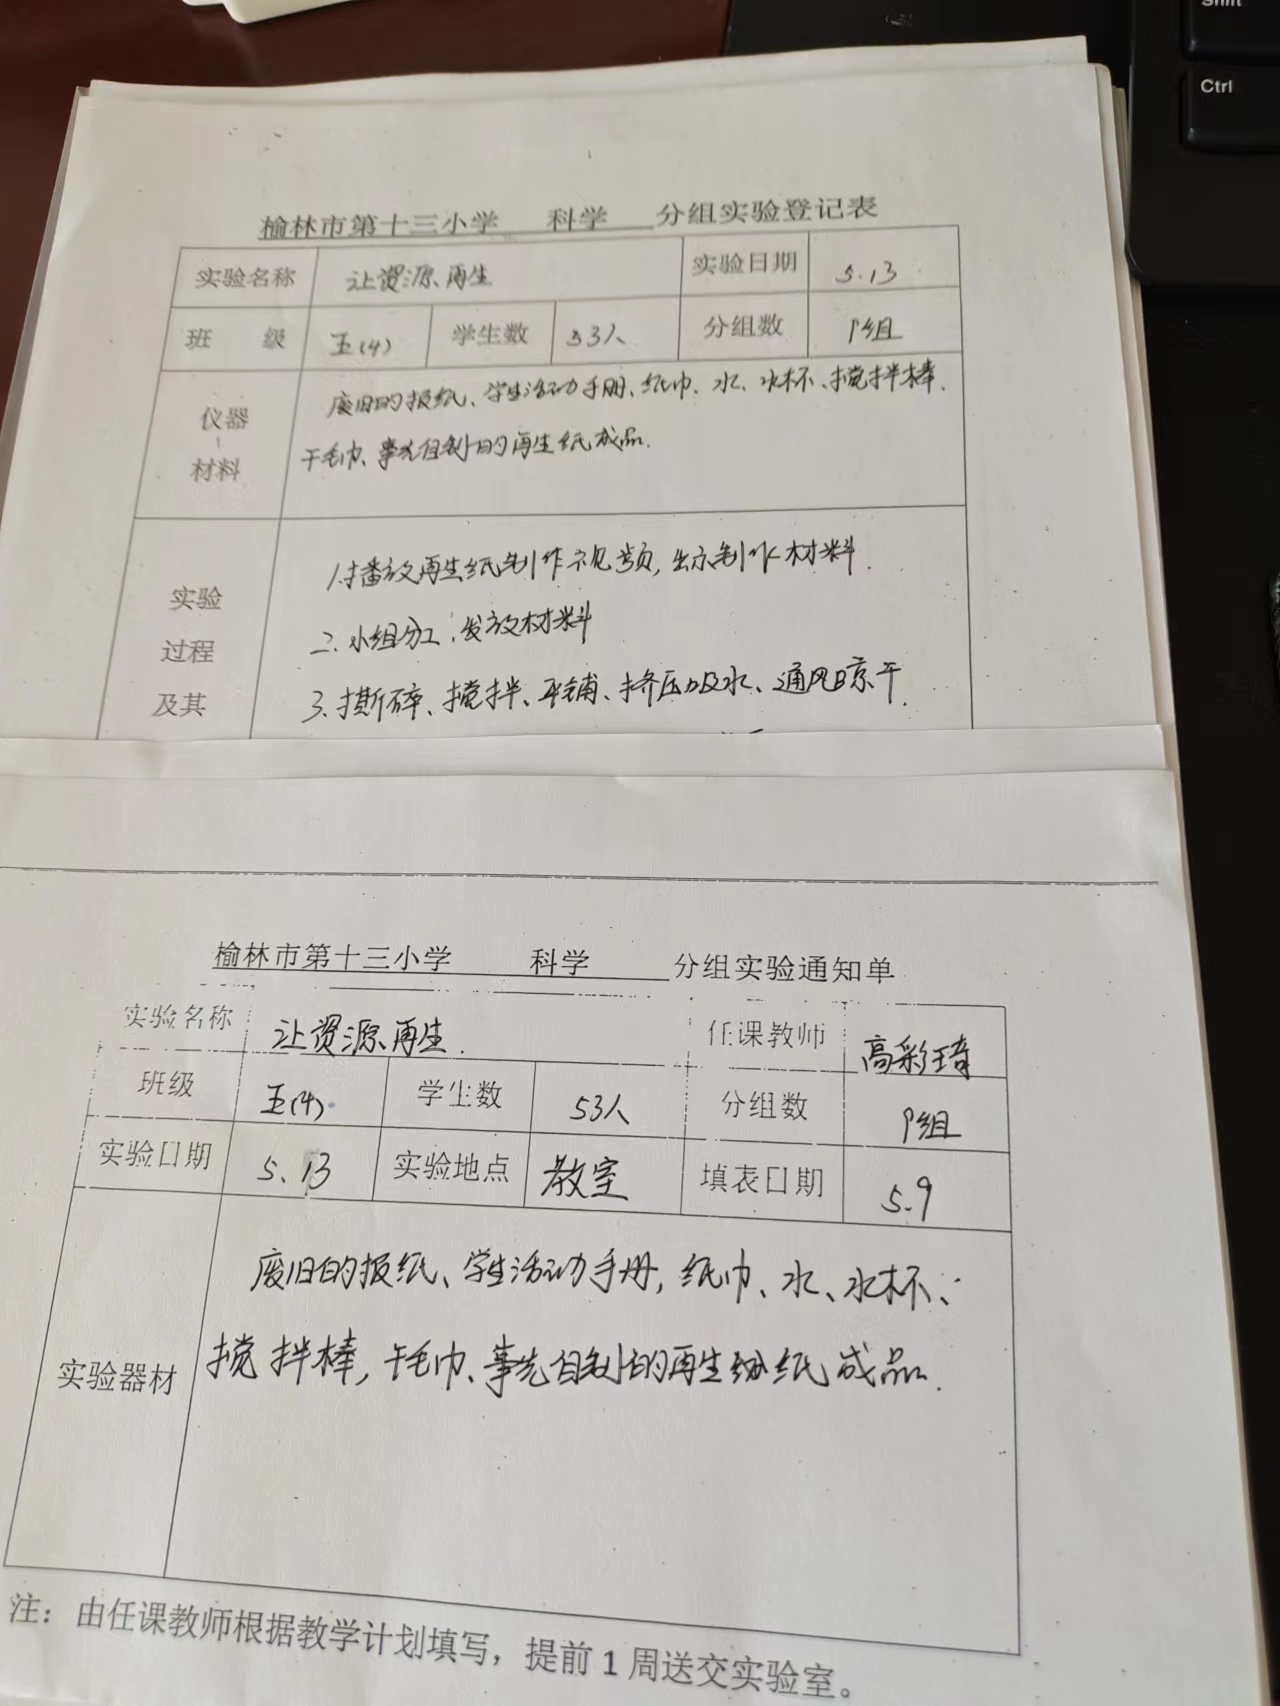 Shift
Ctrl
榆林市第十三小学 科学 分组实验登记表
实验名称 让资源再生 实验日期 5.13
班 级 五(4) 学生数 53人 分组数 9组
仪器 废旧的报纸、学生活动手册、纸巾、水、水杯、搅拌棒、
材料 干毛巾、事先自制的再生纸成品.
1.播放再生纸制作视频,出示制作材料.
实验 2.小组分工;发放材料
过程 3.撕碎、搅拌、平铺、挤压吸水、通风晾干.
及其
榆林市第十三小学 科学 分组实验通知单
实验名称 让资源再生. 任课教师 高彩琦
班级 五(4) 学生数 53人 分组数 9组
实验日期 5.13 实验地点 教室 填表日期 5.9
废旧的报纸、学生活动手册,纸巾、水、水杯、
实验器材 搅拌棒,干毛巾、事先自制的再生纸成品.
注:由任课教师根据教学计划填写,提前1周送交实验室。